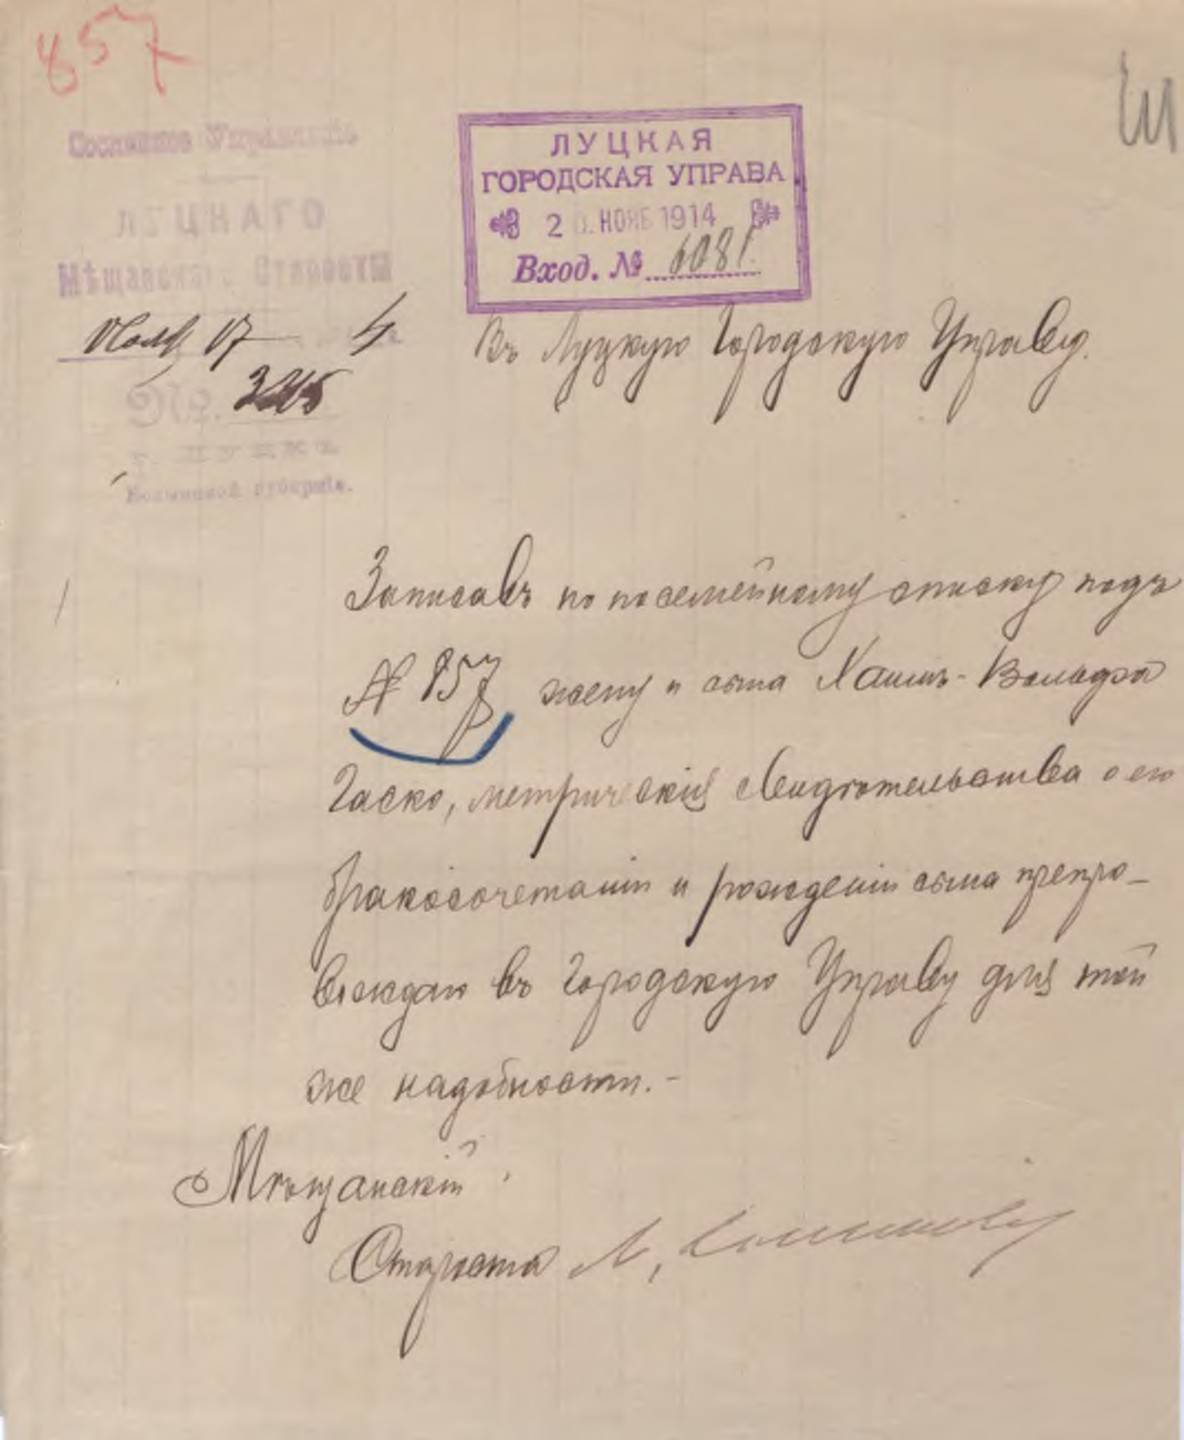 857
Сословное Управленіе
ЛУЦКАГО
Мѣщанскаго Старосты
Нояб 17 4
№. 3215
г. Луцкъ
Волынской губерніи.
ЛУЦКАЯ
ГОРОДСКАЯ УПРАВА
20. НОЯБ 1914
Вход. № 6081.
Въ Луцкую Городскую Управу.
Записавъ по посемейному списку подъ
№ 857 жену и сына Хаимъ-Вольфа
Гаско, метрическія свидѣтельства о его
бракосочетаніи и рожденіи сына препро-
вождаю въ Городскую Управу для той
же надобности.-
Мѣщанскій
Староста